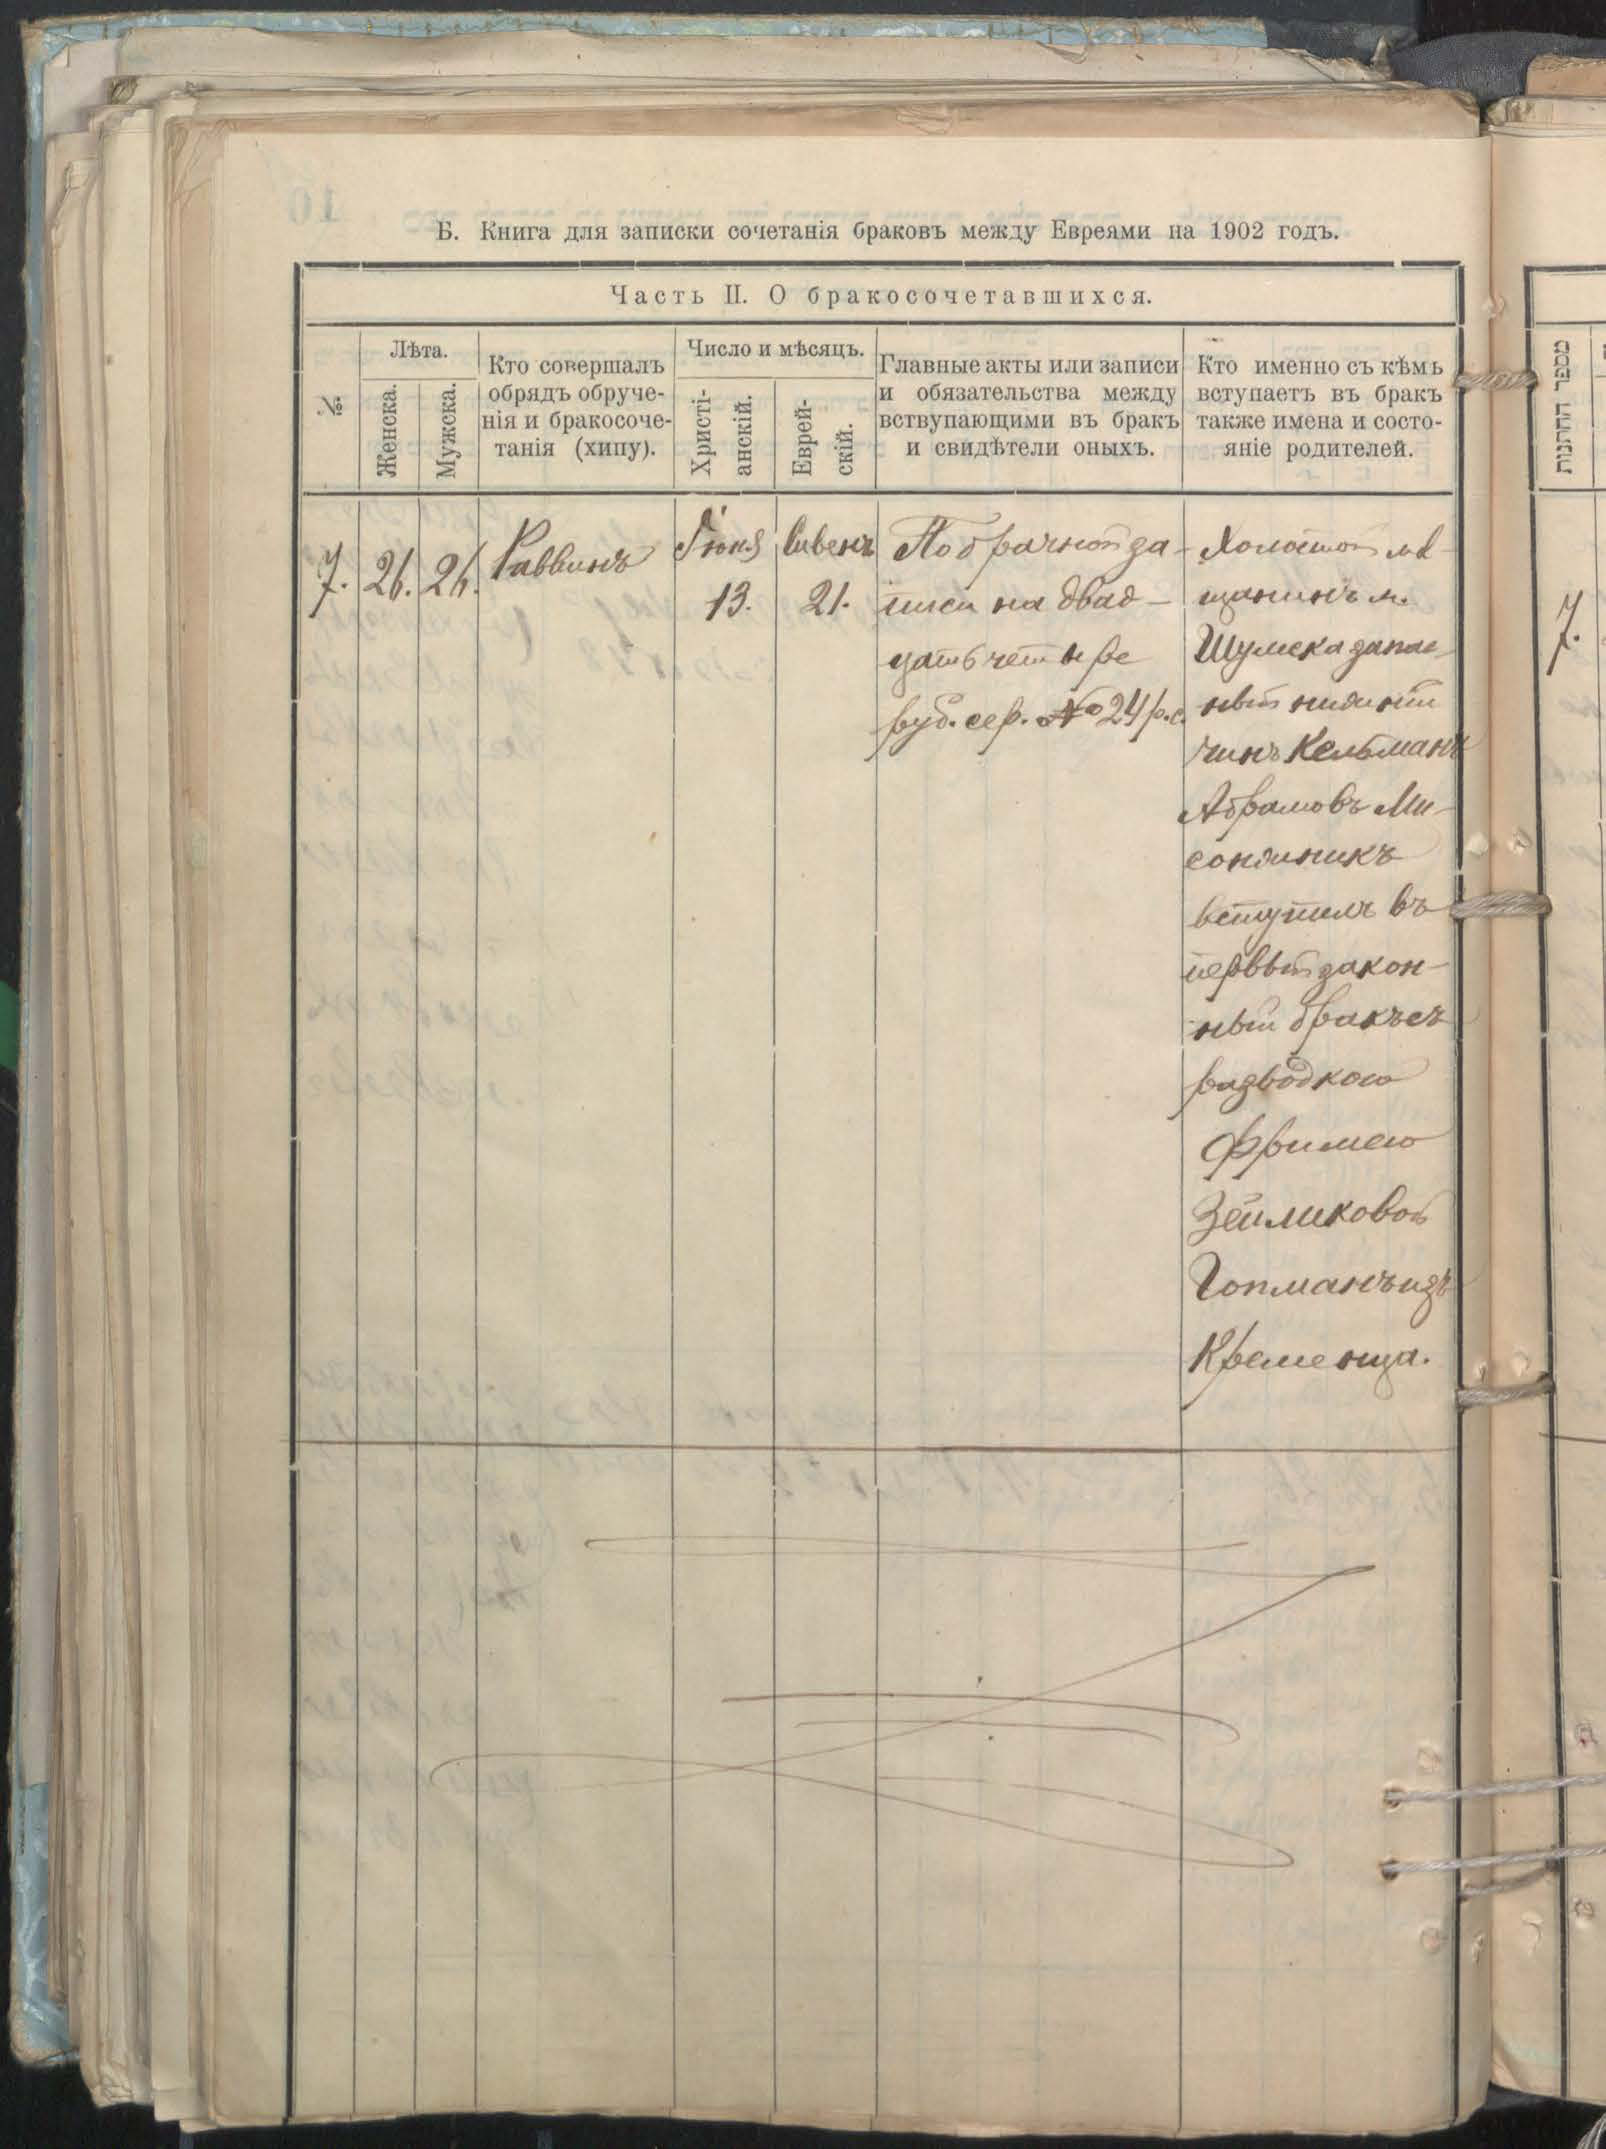 Б. Книга для записки сочетанія браковъ между Евреями на 1902 годъ.
Часть II. О бракосочетавшихся.
№
Лѣта.
Женска.
Мужска.
Кто совершалъ
обрядъ обруче-
нія и бракосоче-
танія (хипу).
Число и мѣсяцъ.
Христі-
анскій.
Еврей-
скій.
Главные акты или записи
и обязательства между
вствупающими въ бракъ
и свидѣтели оныхъ.
Кто именно съ кѣмъ
вступаетъ въ бракъ
также имена и состо-
яніе родителей.
7.
26.
26.
Раввинъ
Іюня
13.
Сивенъ
21.
По брачной за-
писи на двад-
цать четыре
руб. сер. № 24 р.с.
Холостой мѣ-
щанинъ м.
Шумска запас-
ный нижній
чинъ Кельманъ
Абрамовъ Ми-
сонжникъ
вступилъ въ
первый закон-
ный бракъ съ
разводкою
Фримею
Зейликовой
Гопманъ изъ
Кременца.
מספר החתונות
7.